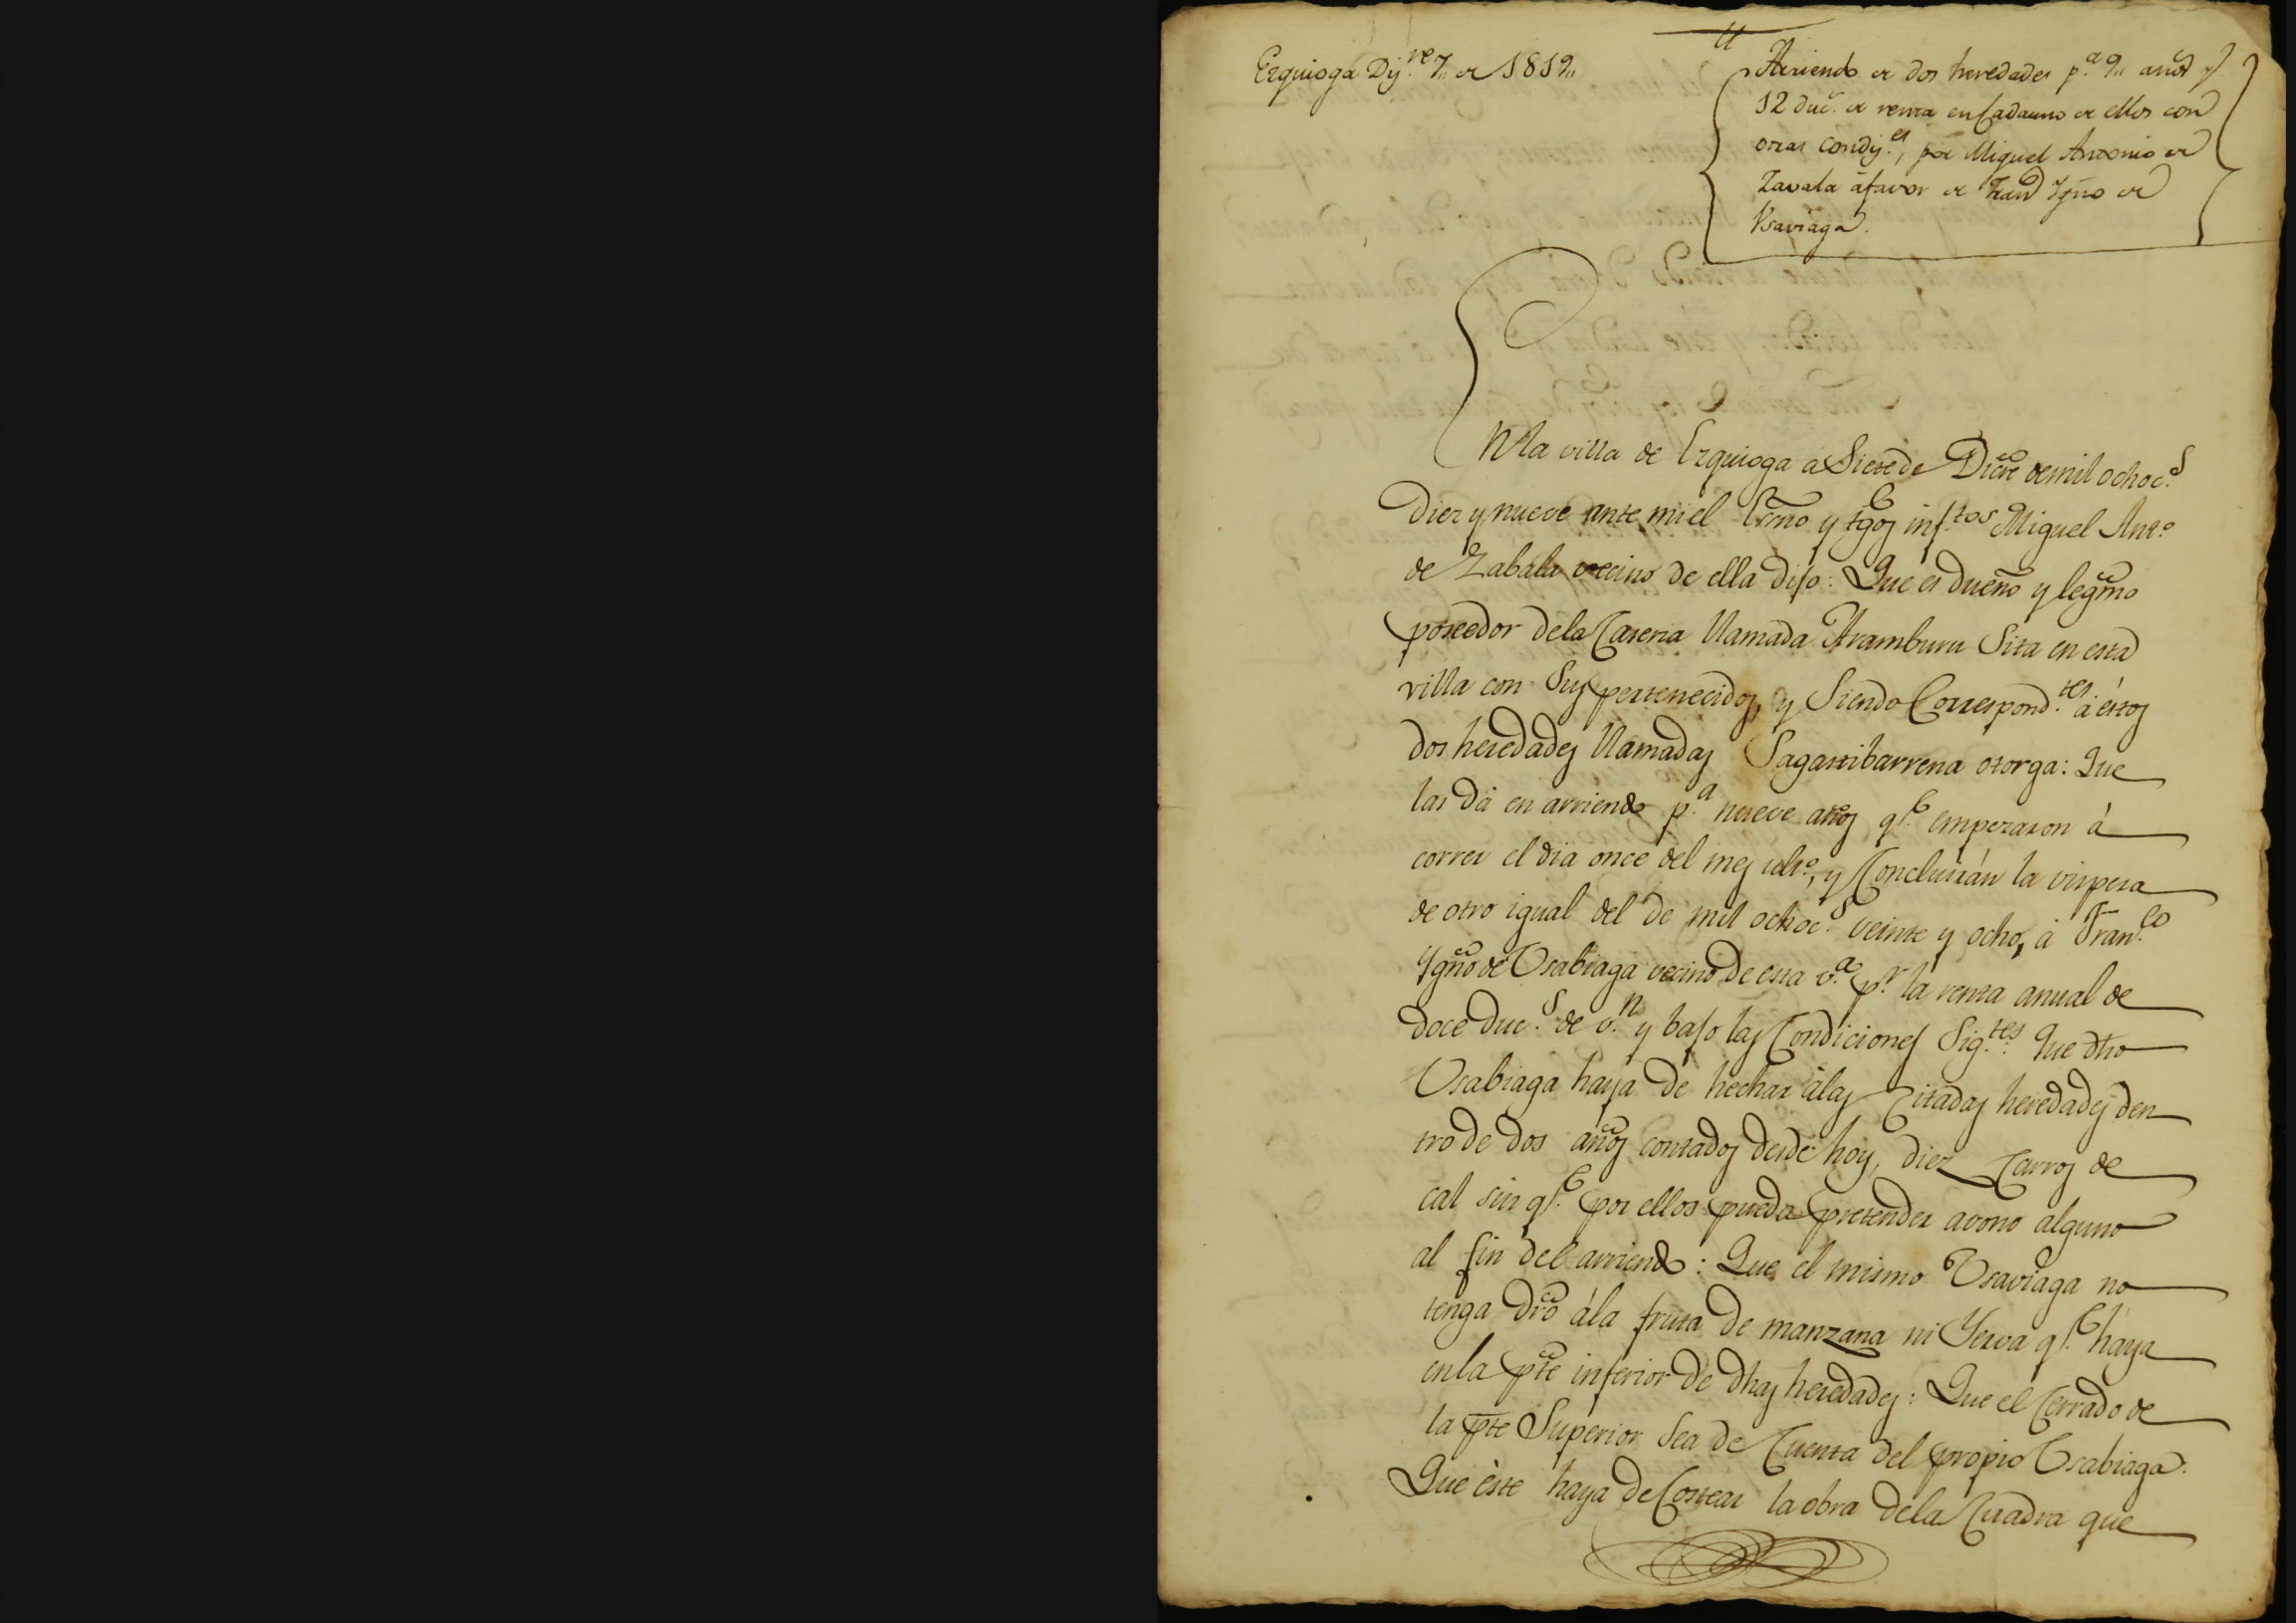 Ezquioga Diz.re 7,, de 1819,,
Arriendo de dos heredades p.a 9,, años y
12 duc.s de renta en Cadauno de ellos con
otras Condiz.es, por Miguel Antonio de
Zavala á favor de Fran.co Ygño de
Vsaviaga.
En la villa de Ezquioga a Siete de Dicre de mil ochoc.s
diez y nueve ante mi el Esño y tgos inf.tos Miguel Ant.o
de Zabala vecino de ella dijo: Que es dueño y legmo
poseedor de la Caseria llamada Aramburu Sita en esta
villa con Sus pertenecidos, y Siendo Correspond.tes á éstos
dos heredades llamadas Sagastibarrena otorga: Que
las dá en arriendo p.a nueve años q.e empezaron á
correr el dia once del mes ult.o, y Concluirán la vispera
de otro igual del de mil ochoc.s veinte y ocho, á Fran.co
Ygño de Vsabiaga vecino de esta v.a p.r la renta anual de
doce duc.s de v.n y bajo las Condiciones Sig.tes: Que dho
Vsabiaga haya de hechar á las Citadas heredades den
tro de dos años contados desde hoy, diez Carros de
cal sin q.e por ellos pueda pretender avono alguno
al fin del arriendo: Que el mismo Vsaviaga no
tenga dro á la fruta de manzana ni Yerva q.e haya
en la pte inferior de dhas heredades: Que el Cerrado de
la pte Superior Sea de Cuenta del propio Vsabiaga:
Que èste haya de Costear la obra de la Cuadra que